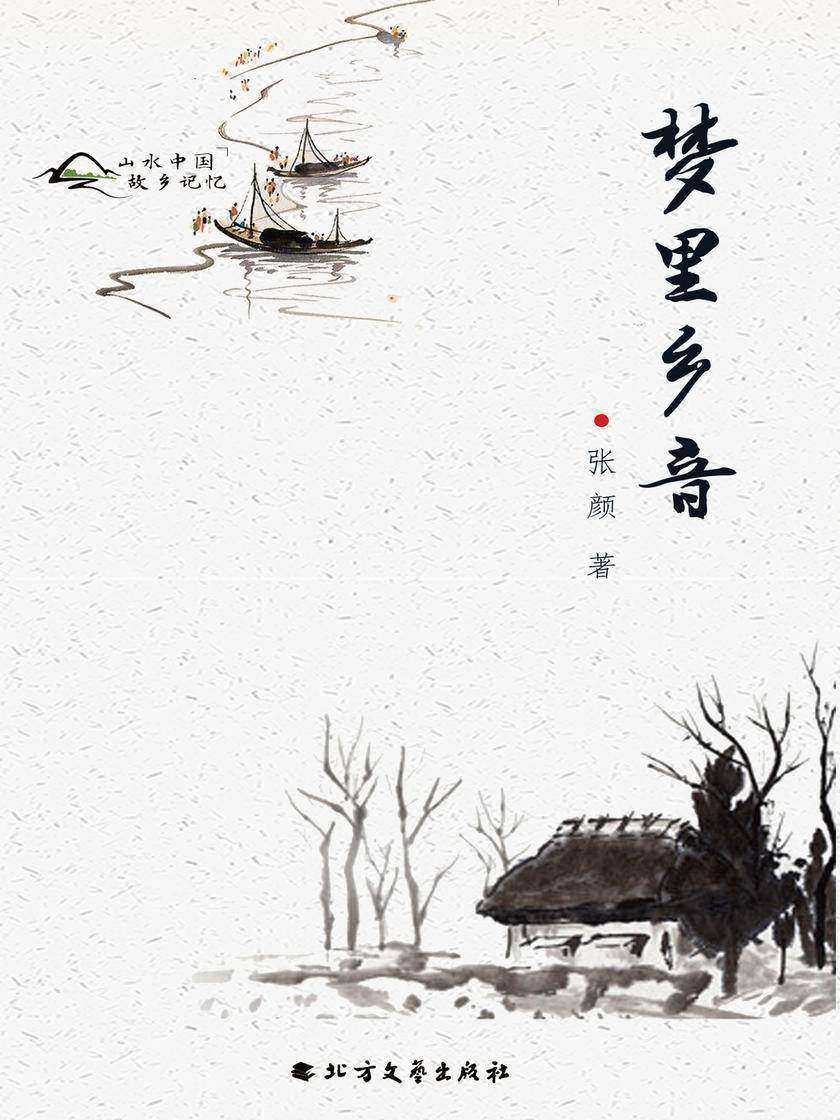 山水中国
故乡记忆
梦里乡音
张颜 著
北方文艺出版社